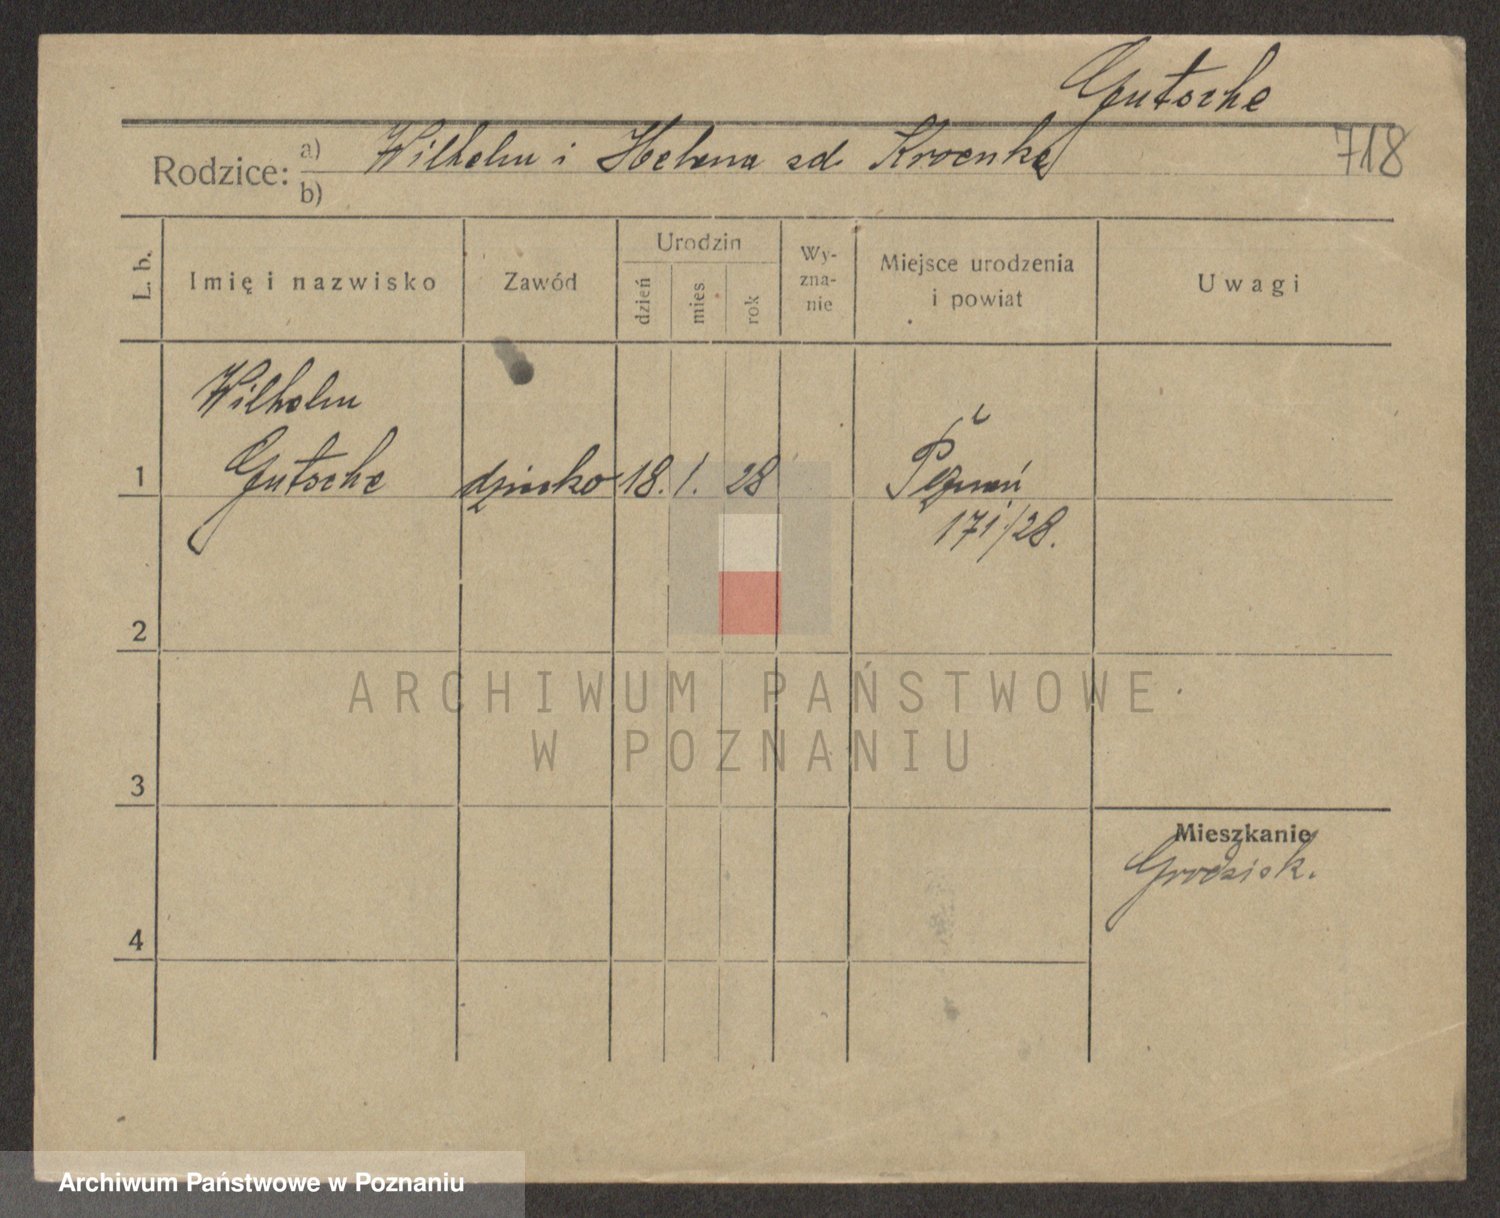 Gutsche
718
Rodzice: a) Wilhelm i Helena zd. Kroenke
b)
L. b.
Imię i nazwisko
Zawód
Urodzin
dzień
mies
rok
Wy-
zna-
nie
Miejsce urodzenia
i powiat
Uwagi
Wilhelm
1 Gutsche dziecko 18. 1. 28 Poznań
171/28.
2
ARCHIWUM PAŃSTWOWE
W POZNANIU
3
Mieszkanie
Grodzisk.
4
Archiwum Państwowe w Poznaniu